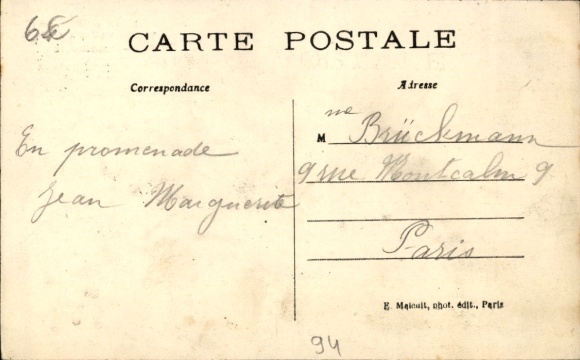 CARTE POSTALE
Correspondance
Adresse
En promenade
Jean Marguerite
Mme Brückmann
9 rue Montcalm 9
Paris
E. Malcuit, phot. édit., Paris
94